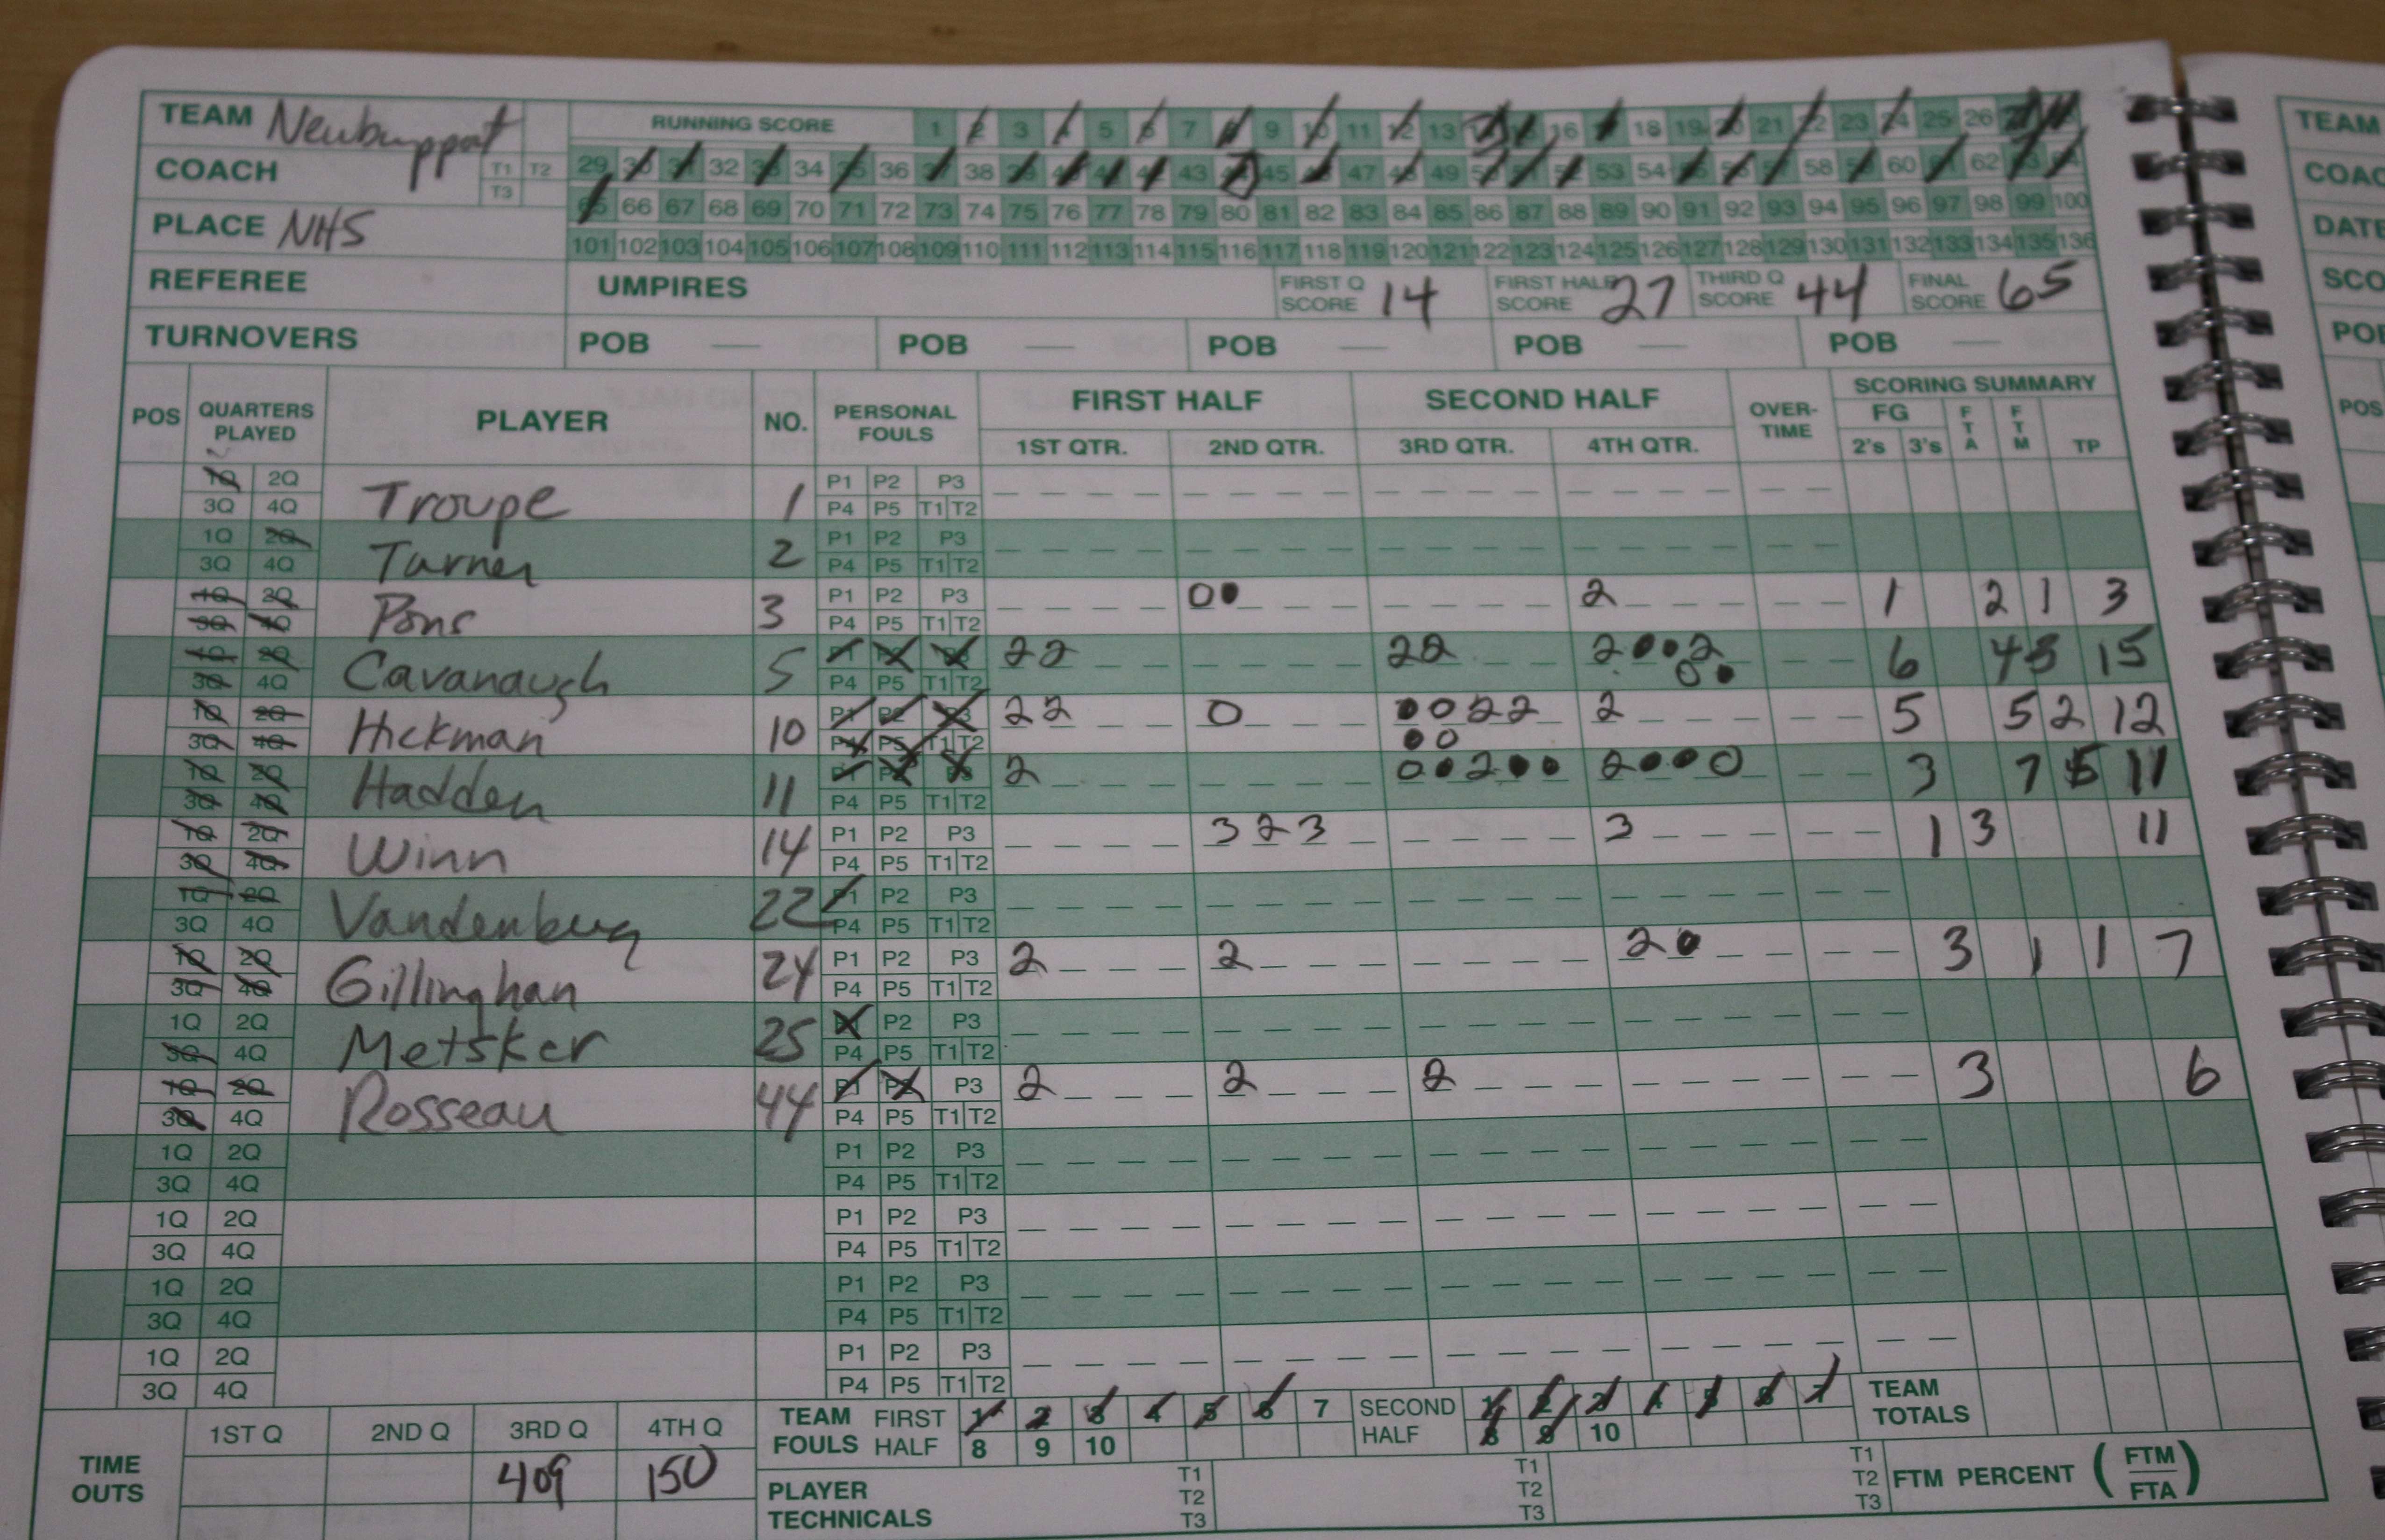 TEAM Newburyport RUNNING SCORE 1 2 3 4 5 6 7 8 9 10 11 12 13 14 15 16 17 18 19 20 21 22 23 24 25 26 27 28
COACH T1 T2 T3 29 30 31 32 33 34 35 36 37 38 39 40 41 42 43 44 45 46 47 48 49 50 51 52 53 54 55 56 57 58 59 60 61 62 63 64
65 66 67 68 69 70 71 72 73 74 75 76 77 78 79 80 81 82 83 84 85 86 87 88 89 90 91 92 93 94 95 96 97 98 99 100
PLACE NHS 101 102 103 104 105 106 107 108 109 110 111 112 113 114 115 116 117 118 119 120 121 122 123 124 125 126 127 128 129 130 131 132 133 134 135 136
REFEREE UMPIRES FIRST Q SCORE 14 FIRST HALF SCORE 27 THIRD Q SCORE 44 FINAL SCORE 65
TURNOVERS POB — POB — POB — POB — POB —
POS QUARTERS PLAYED PLAYER NO. PERSONAL FOULS FIRST HALF SECOND HALF OVER-TIME SCORING SUMMARY
1ST QTR. 2ND QTR. 3RD QTR. 4TH QTR. FG 2's 3's FTA FTM TP
1Q 2Q Troupe 1 P1 P2 P3
3Q 4Q P4 P5 T1 T2
1Q 2Q Turner 2 P1 P2 P3
3Q 4Q P4 P5 T1 T2
1Q 2Q Pons 3 P1 P2 P3 0● 2 1 2 1 3
3Q 4Q P4 P5 T1 T2
1Q 2Q Cavanaugh 5 P1 P2 P3 22 22 2●●2 6 4 3 15
3Q 4Q P4 P5 T1 T2 0●
1Q 2Q Hickman 10 P1 P2 P3 22 0 ●022 2 5 5 2 12
3Q 4Q P4 P5 T1 T2 ●0
1Q 2Q Hadden 11 P1 P2 P3 2 0●2●● 2●●●0 3 7 5 11
3Q 4Q P4 P5 T1 T2
1Q 2Q Winn 14 P1 P2 P3 323 3 1 3 11
3Q 4Q P4 P5 T1 T2
1Q 2Q Vandenburg 22 P1 P2 P3
3Q 4Q P4 P5 T1 T2
1Q 2Q Gillinghan 24 P1 P2 P3 2 2 2● 3 1 1 7
3Q 4Q P4 P5 T1 T2
1Q 2Q Metsker 25 P1 P2 P3
3Q 4Q P4 P5 T1 T2
1Q 2Q Rosseau 44 P1 P2 P3 2 2 2 3 6
3Q 4Q P4 P5 T1 T2
1Q 2Q P1 P2 P3
3Q 4Q P4 P5 T1 T2
1Q 2Q P1 P2 P3
3Q 4Q P4 P5 T1 T2
1Q 2Q P1 P2 P3
3Q 4Q P4 P5 T1 T2
1Q 2Q P1 P2 P3
3Q 4Q P4 P5 T1 T2
TIME OUTS 1ST Q 2ND Q 3RD Q 4TH Q
409 150
TEAM FOULS FIRST HALF 1 2 3 4 5 6 7 SECOND HALF 1 2 3 4 5 6 7 TEAM TOTALS
8 9 10 8 9 10
PLAYER TECHNICALS T1 T2 T3 T1 T2 T3 T1 T2 T3 FTM PERCENT (FTM/FTA)
TEAM
COAC
DATE
SCO
POB
POS